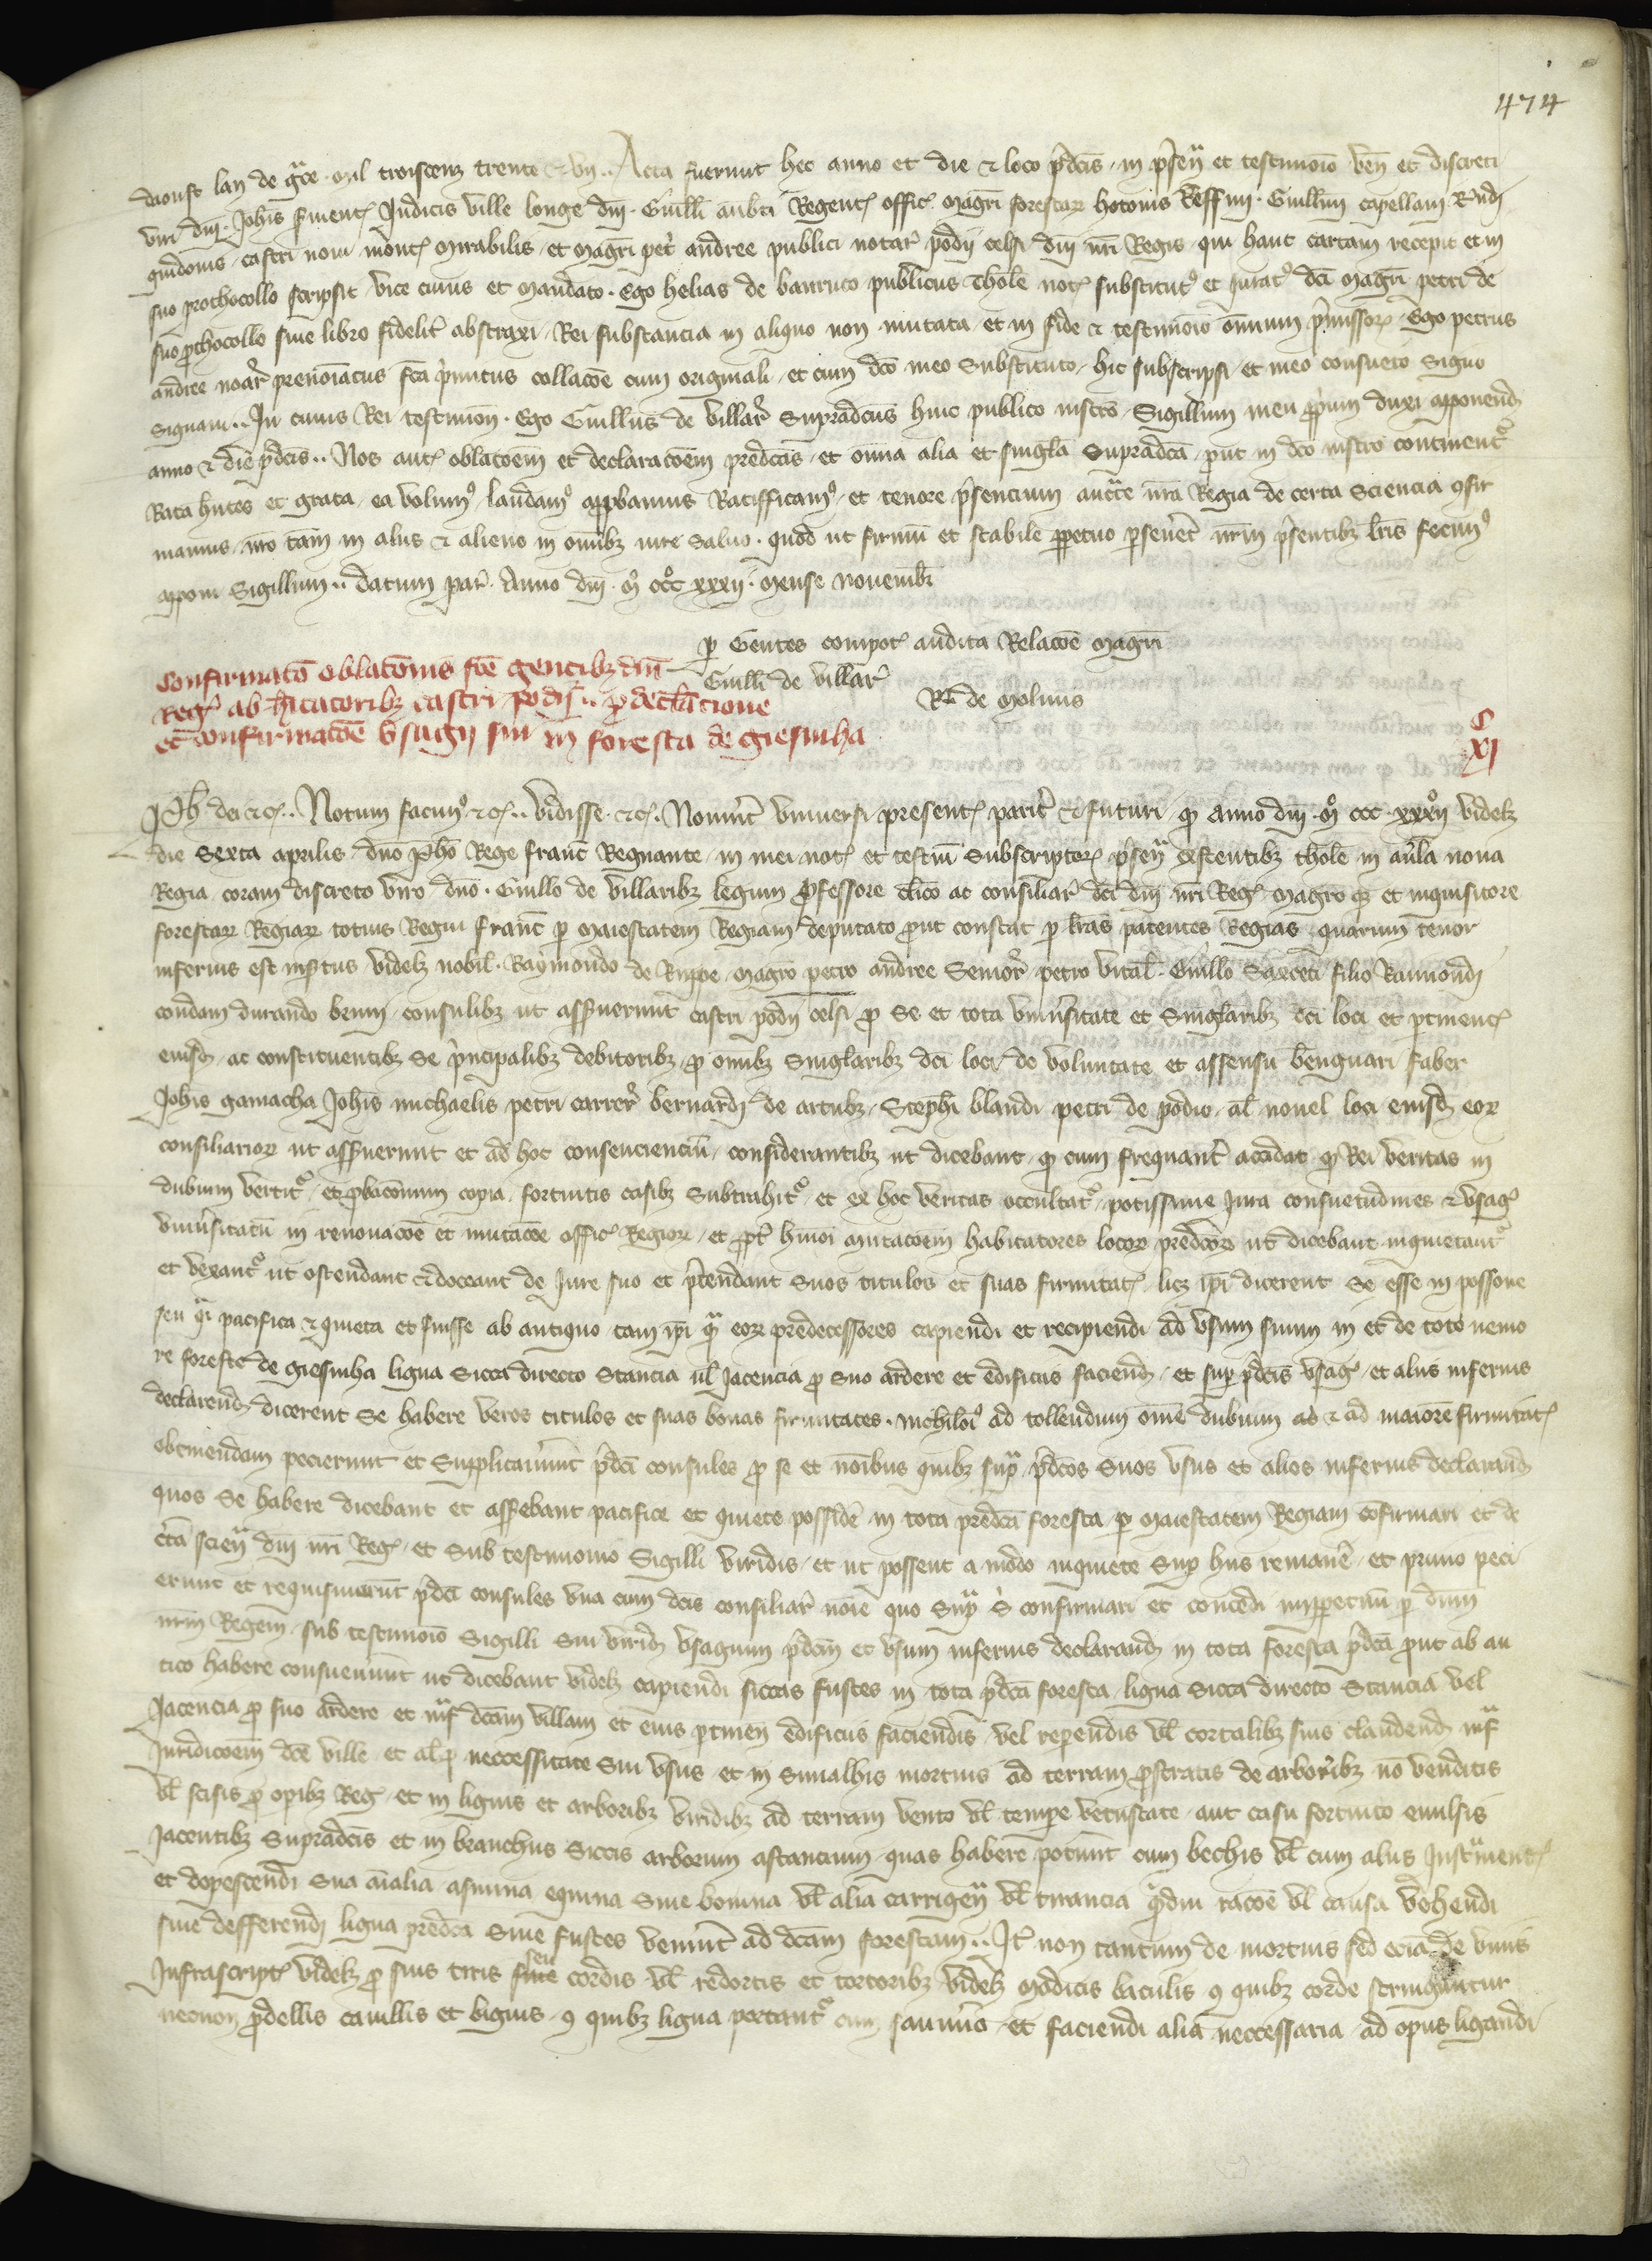 474
daoust lan de gce mil troiscenz trente & vn .. Acta fuerunt hec anno et die & loco pdcis in psen et testimoio ven et discreti
viri dni Johis Judicis ville longe dni Guilli aubti Regent offic magri forestar hotonis Guillmi capellam
guidonis castri noui mont mirabilis et magri pet andree publici notar podij celsi dni nri Regis qui hanc cartam recepit et in
suo prothocollo scripsit vice cuius et mandato Ego helias de banruco publicus thole not substitut et Jurat dci magri petri de
suo pthocollo siue libro fidelit abstraxi Rei substancia in aliquo non mutata et in fide & testimoio omnium pmissor Ego petrus
andree noar prenoiatus fca pmitus collacoe cum originali et cum dco meo substituto hic subscripsi et meo consueto signo
signaui .. In cuius Rei testimon Ego Guillus de villar supradcus huic publico instro Sigillum meu ppium duxi apponend
anno & die pdcis .. Nos aut oblacoem et declaracoem predcas et oima alia et singla supradca put in dco instro continent
Rata hntes et grata ea volum laudam appbamus Ratifficam et tenore psencium auctte nra Regia de certa sciencia 9fir
mamus nro tam in alijs & alieno in omibz iure saluo quod ut firmu et stabile ppetuo perseuet nrm psentibz lris fecim
apponi Sigillum .. datum par Anno dni m ccc xxxij mense nouemb
p Gentes compot audita Relacoe magri
Guilli de villar
R de molinis
Confirmato oblacomis fce gentibz dni
Reg ab hitatoribz castri podij .. p declacione
et confirmacoe vsagij sui in foresta de giesinha
C
XI
Ph dei &c .. Notum facim &c .. vidisse &c Nouint vniuersi present parit & futuri q anno dni m ccc xxxij videlz
die sexta aprilis dno Pho Rege franc Regnante in mei not et testiu subscriptor psen existentibz thole in aula noua
Regia coram discreto viro dno Guillo de villaribz legum pfessore clico ac consiliar dci dni nri Reg magro qz et inquisitore
forestar Regiar totius Regni franc p maiestatem Regiam deputato put constat p lras patentes Regias quarum tenor
inferius est insertus videlz nobil Raymondo de Rupe magro petro andree senior petro vital Guillo filio Raimondi
condam durando brun consulibz ut assuerunt castri podij celsi p se et tota vniusitate et singlaribz dci loci et ptinent
eiusd ac constituentibz se pncipalibz debitoribz p omibz singlaribz dci loci de voluntate et assensu benguari faber
Johis gamacha Johis michaelis petri carrer bernardi de artubz Stephi blandi petri de podio al nouel loci eiusd eor
consiliarior ut assuerunt et ad hoc consenciencium considerantibz ut dicebant q cum frequant accidat q Rei veritas in
dubium vertit et pbacionum copia fortuitis casibz subtrahit et ex hoc veritas occultat potissime Jura consuetudines & vsag
vniusitatu in renouacoe et mutacoe offic Regior et ppt hmoi mutacoem habitatores locor predcor ut dicebant inquietant
et vexant ut ostendant & doceant de Jure suo et ptendant suos titulos et suas firmitat licz ipi dicerent se esse in possone
seu qi pacifica & quieta et fuisse ab antiquo tam ipi qa eor predecessores capiendi et recipiendi ad vsum suum in et de toto nemo
re foreste de giesinha ligna sicca directo stancia ul Jacencia p suo ardere et edificiis faciend et sup pdcis vsag et alijs inferius
declarend dicerent se habere veros titulos et suas bonas firmitates nichiloi ad tollendum ome dubium ad & ad maiore firmitat
obtinendam pecierunt et supplicauunt pdci consules p se et noibus quibz sup pdcos suos vsus et alios inferius declarand
quos se habere dicebant et assebant pacifice et quiete posside in tota predca foresta p maiestatem Regiam cofirmari et de
cta scien dni nri Reg et sub testimonio Sigilli viridis et ut possent a modo inquiete sup hiis remane et primo peci
erunt et requisiuerunt pdci consules vna cum dcis consiliar noie quo sup s confirmari et concedi imppetuu p dnm
nrm Regem sub testimoio Sigilli sui virid vsagium pdcm et vsum inferius declarand in tota foresta pdca put ab an
tico habere consueuunt ut dicebant videlz capiendi siccas fustes in tota pdca foresta ligna sicca directo stancia vel
Jacencia p suo ardere et inf dcam villam et eius ptinen edificiis faciendis vel reperendis vl cortalibz suis claudend inf
Juridicoem dce ville et al p neccessitate sui vsus et in simalhis mortuis ad terram pstratis de arboribz no venditis
vl scisis p opibz Reg et in lignis et arboribz viridibz ad terram vento vl tempe vetustate aut casu fortuito euulsis
Jacentibz supradcis et in branchiis siccis arborum astancium quas habere potunt cum bechis vl cum alijs Instument
et depescendi sua aialia asinina equina siue bouina vl alia carrigen vl tirancia qdiu racoe vl causa vehendi
siue defferendi ligna predca siue fustes veniunt ad dcam forestam .. It non tantum de mortuis sed ecia de viuis
Infrascript videlz p suis siue seu cordis vl redortis et tortoribz videlz modicis baculis 9 quibz corde stringuntur
necnon pdellis cauillis et biguis 9 quibz ligna portant cum saumis et faciendi alia neccessaria ad opus ligandi